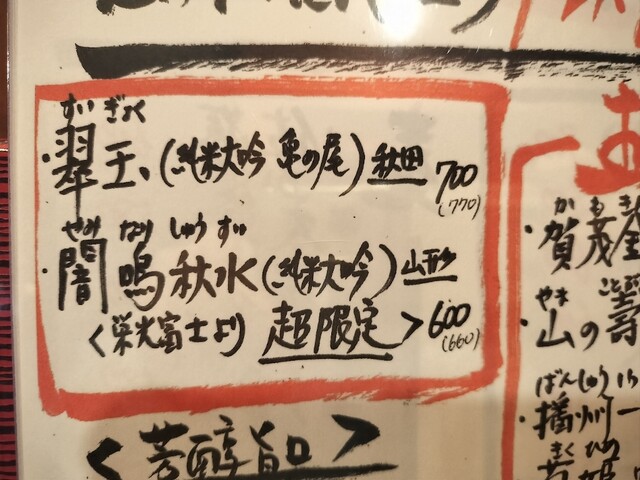 すいぎょく
・翠玉、(純米大吟 亀の尾) 秋田 700
(770)
やみ なり しゅう すい
・闇鳴秋水(純米大吟) 山形
<栄光富士より 超限定> 600
(660)
<芳醇旨口>
お
かもきん
・賀茂金
やま ことぶき
・山の壽
ばんしゅういち
・播州一
きくひめ